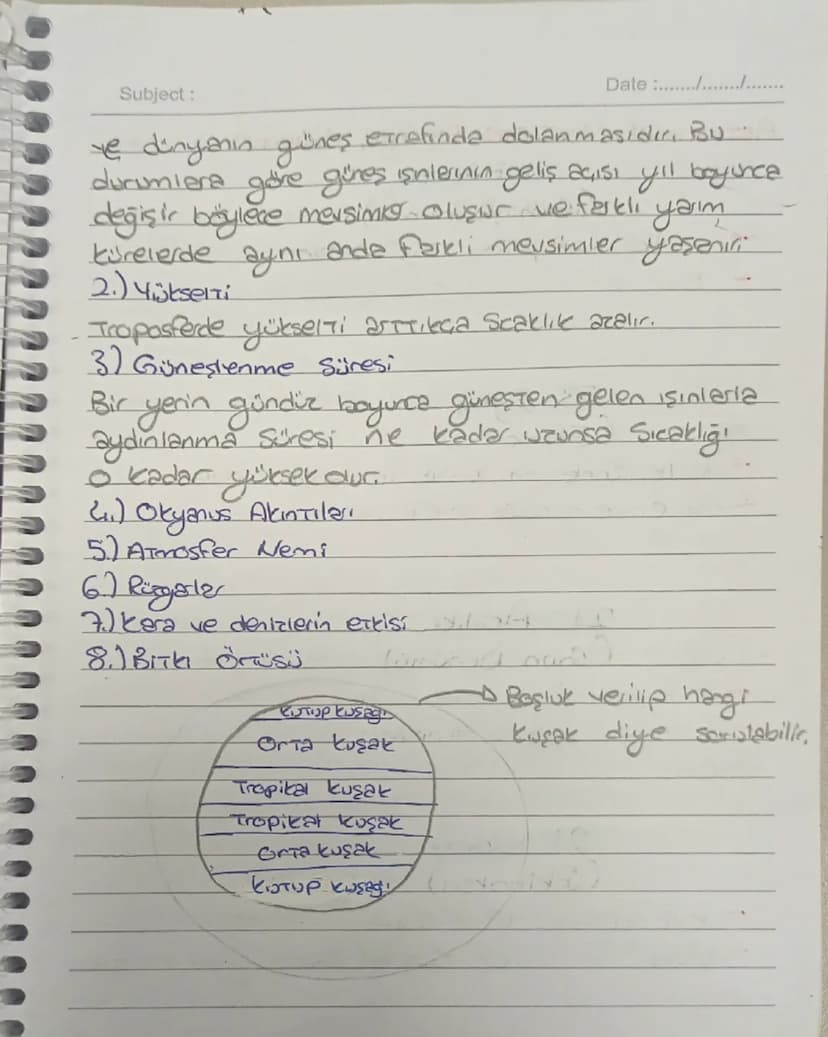 Subject :
Date :......./......./.......
ve dünyanın güneş etrafında dolanmasıdır. Bu
durumlara göre güneş ışınlarının geliş açısı yıl boyunca
değişir böylece mevsimler oluşur ve farklı yarım
kürelerde aynı anda farklı mevsimler yaşanır.
2.) Yükselti
Troposferde yükselti arttıkça scaklık azalır.
3) Güneşlenme Süresi
Bir yerin gündüz boyunca güneşten gelen ışınlarla
aydınlanma süresi ne kadar uzunsa sıcaklığı
o kadar yüksek olur.
4.) Okyanus Akıntıları
5.) Atmosfer Nemi
6.) Rüzgarlar
7.) Kara ve denizlerin etkisi
8.) Bitki Örtüsü
Boşluk verilip hangi
kuşak diye sorulabilir.
Kutup kuşağı
Orta kuşak
Tropikal kuşak
Tropikal kuşak
Orta kuşak
Kutup kuşağı